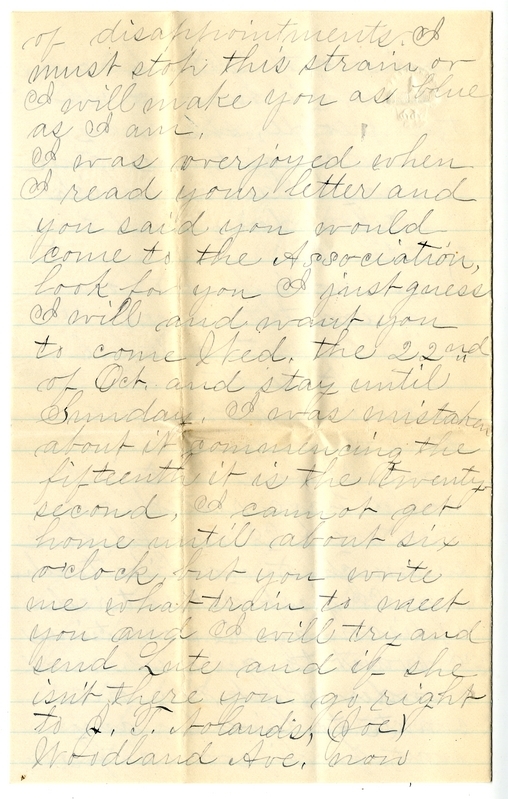 of disappointments. I
must stop this strain or
I will make you as blue
as I am.
I was overjoyed when
I read your letter and
you said you would
come to the Association,
look for you I just guess
I will and want you
to come Wed. the 22nd
of Oct. and stay until
Sunday. I was mistaken
about it commencing the
fifteenth it is the twenty
second. I cannot get
home until about six
o'clock, but you write
me what train to meet
you and I will try and
send Lute and if she
isn't there you go right
to J. T. Noland's, (Joe)
Woodland Ave. now